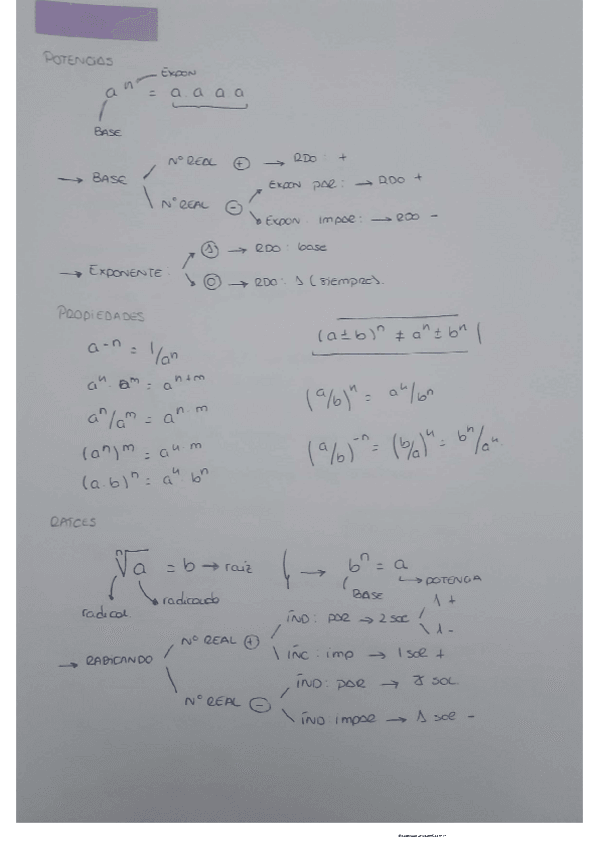 POTENCIAS
aⁿ = a a a a
EXPON
BASE
→ BASE
Nº REAL ⊕ → RDO: +
Nº REAL ⊖
EXPON PAR: → RDO +
EXPON. IMPAR: → RDO -
→ EXPONENTE
① → RDO: base
⓪ → RDO: 1 (SIEMPRE).
PROPIEDADES
a⁻ⁿ = 1/aⁿ
aⁿ · aᵐ = aⁿ⁺ᵐ
aⁿ/aᵐ = aⁿ·ᵐ
(aⁿ)ᵐ = aⁿ·ᵐ
(a·b)ⁿ = aⁿ · bⁿ
(a±b)ⁿ ≠ aⁿ ± bⁿ
(a/b)ⁿ = aⁿ/bⁿ
(a/b)⁻ⁿ = (b/a)ⁿ = bⁿ/aⁿ
RAÍCES
ⁿ√a = b → raiz
radical
radicando
→ bⁿ = a
BASE
POTENCIA
→ RADICANDO
Nº REAL ⊕
ÍND: PAR → 2 SOL
1 +
1 -
ÍNC: IMP → 1 SOL +
Nº REAL ⊖
ÍND: PAR → SOL.
ÍND IMPAR → 1 SOL -